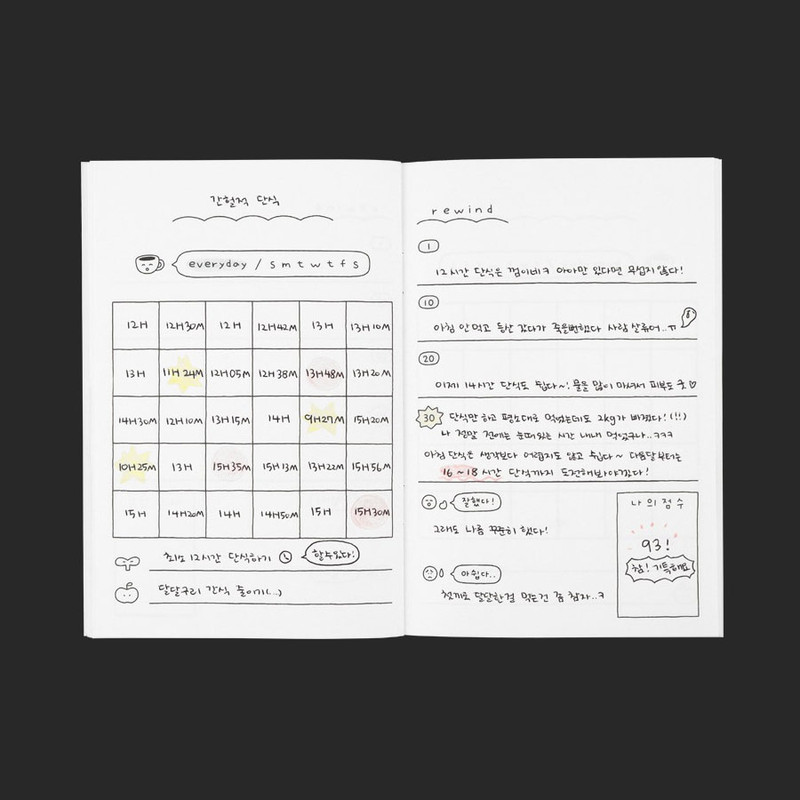 간헐적 단식
everyday / s m t w t f s
12H 12H30M 12H 12H42M 13H 13H10M
13H 11H24M 12H05M 12H38M 13H48M 13H20M
14H30M 12H10M 13H15M 14H 9H27M 15H20M
10H25M 13H 15H35M 15H13M 13H22M 15H56M
15H 14H20M 14H 14H50M 15H 15H30M
최소 12시간 단식하기 할수있다!
달달구리 간식 줄이기(...)
rewind
1
12시간 단식은 껌이네ㅋ 아아만 있다면 무섭지 않다!
10
아침 안먹고 등산 갔다가 죽을뻔했다 사람 살류..ㅠ
20
이제 14시간 단식도 쉽다~! 물을 많이 마셔서 피부도 굿♡
30
단식만 하고 평소대로 먹었는데도 2kg가 빠졌다!(!!!)
나 정말 전에는 눈떠있는 시간 내내 먹었구나..ㅋㅋㅋ
아침 단식은 생각보다 어렵지도 않고 쉽다~ 다음달부터는
16~18시간 단식까지 도전해봐야겠다!
잘했다!
그래도 나름 꾸준히 했다!
아쉽다..
첫끼로 달달한걸 먹는건 좀 참자..ㅋ
나의 점수
93!
참! 기특해요